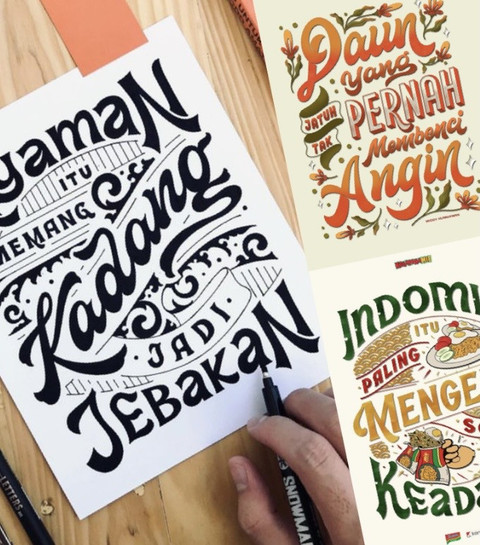 yamaN
ITU
MEMANG
Kadang
JADI
JEBAKaN
SNOWM
LETTERS
Daun
Yang
JATUH
TAK
PERNAH
Membenci
Angin
INDOMI
ITU
PALING
MENGE
KEADA